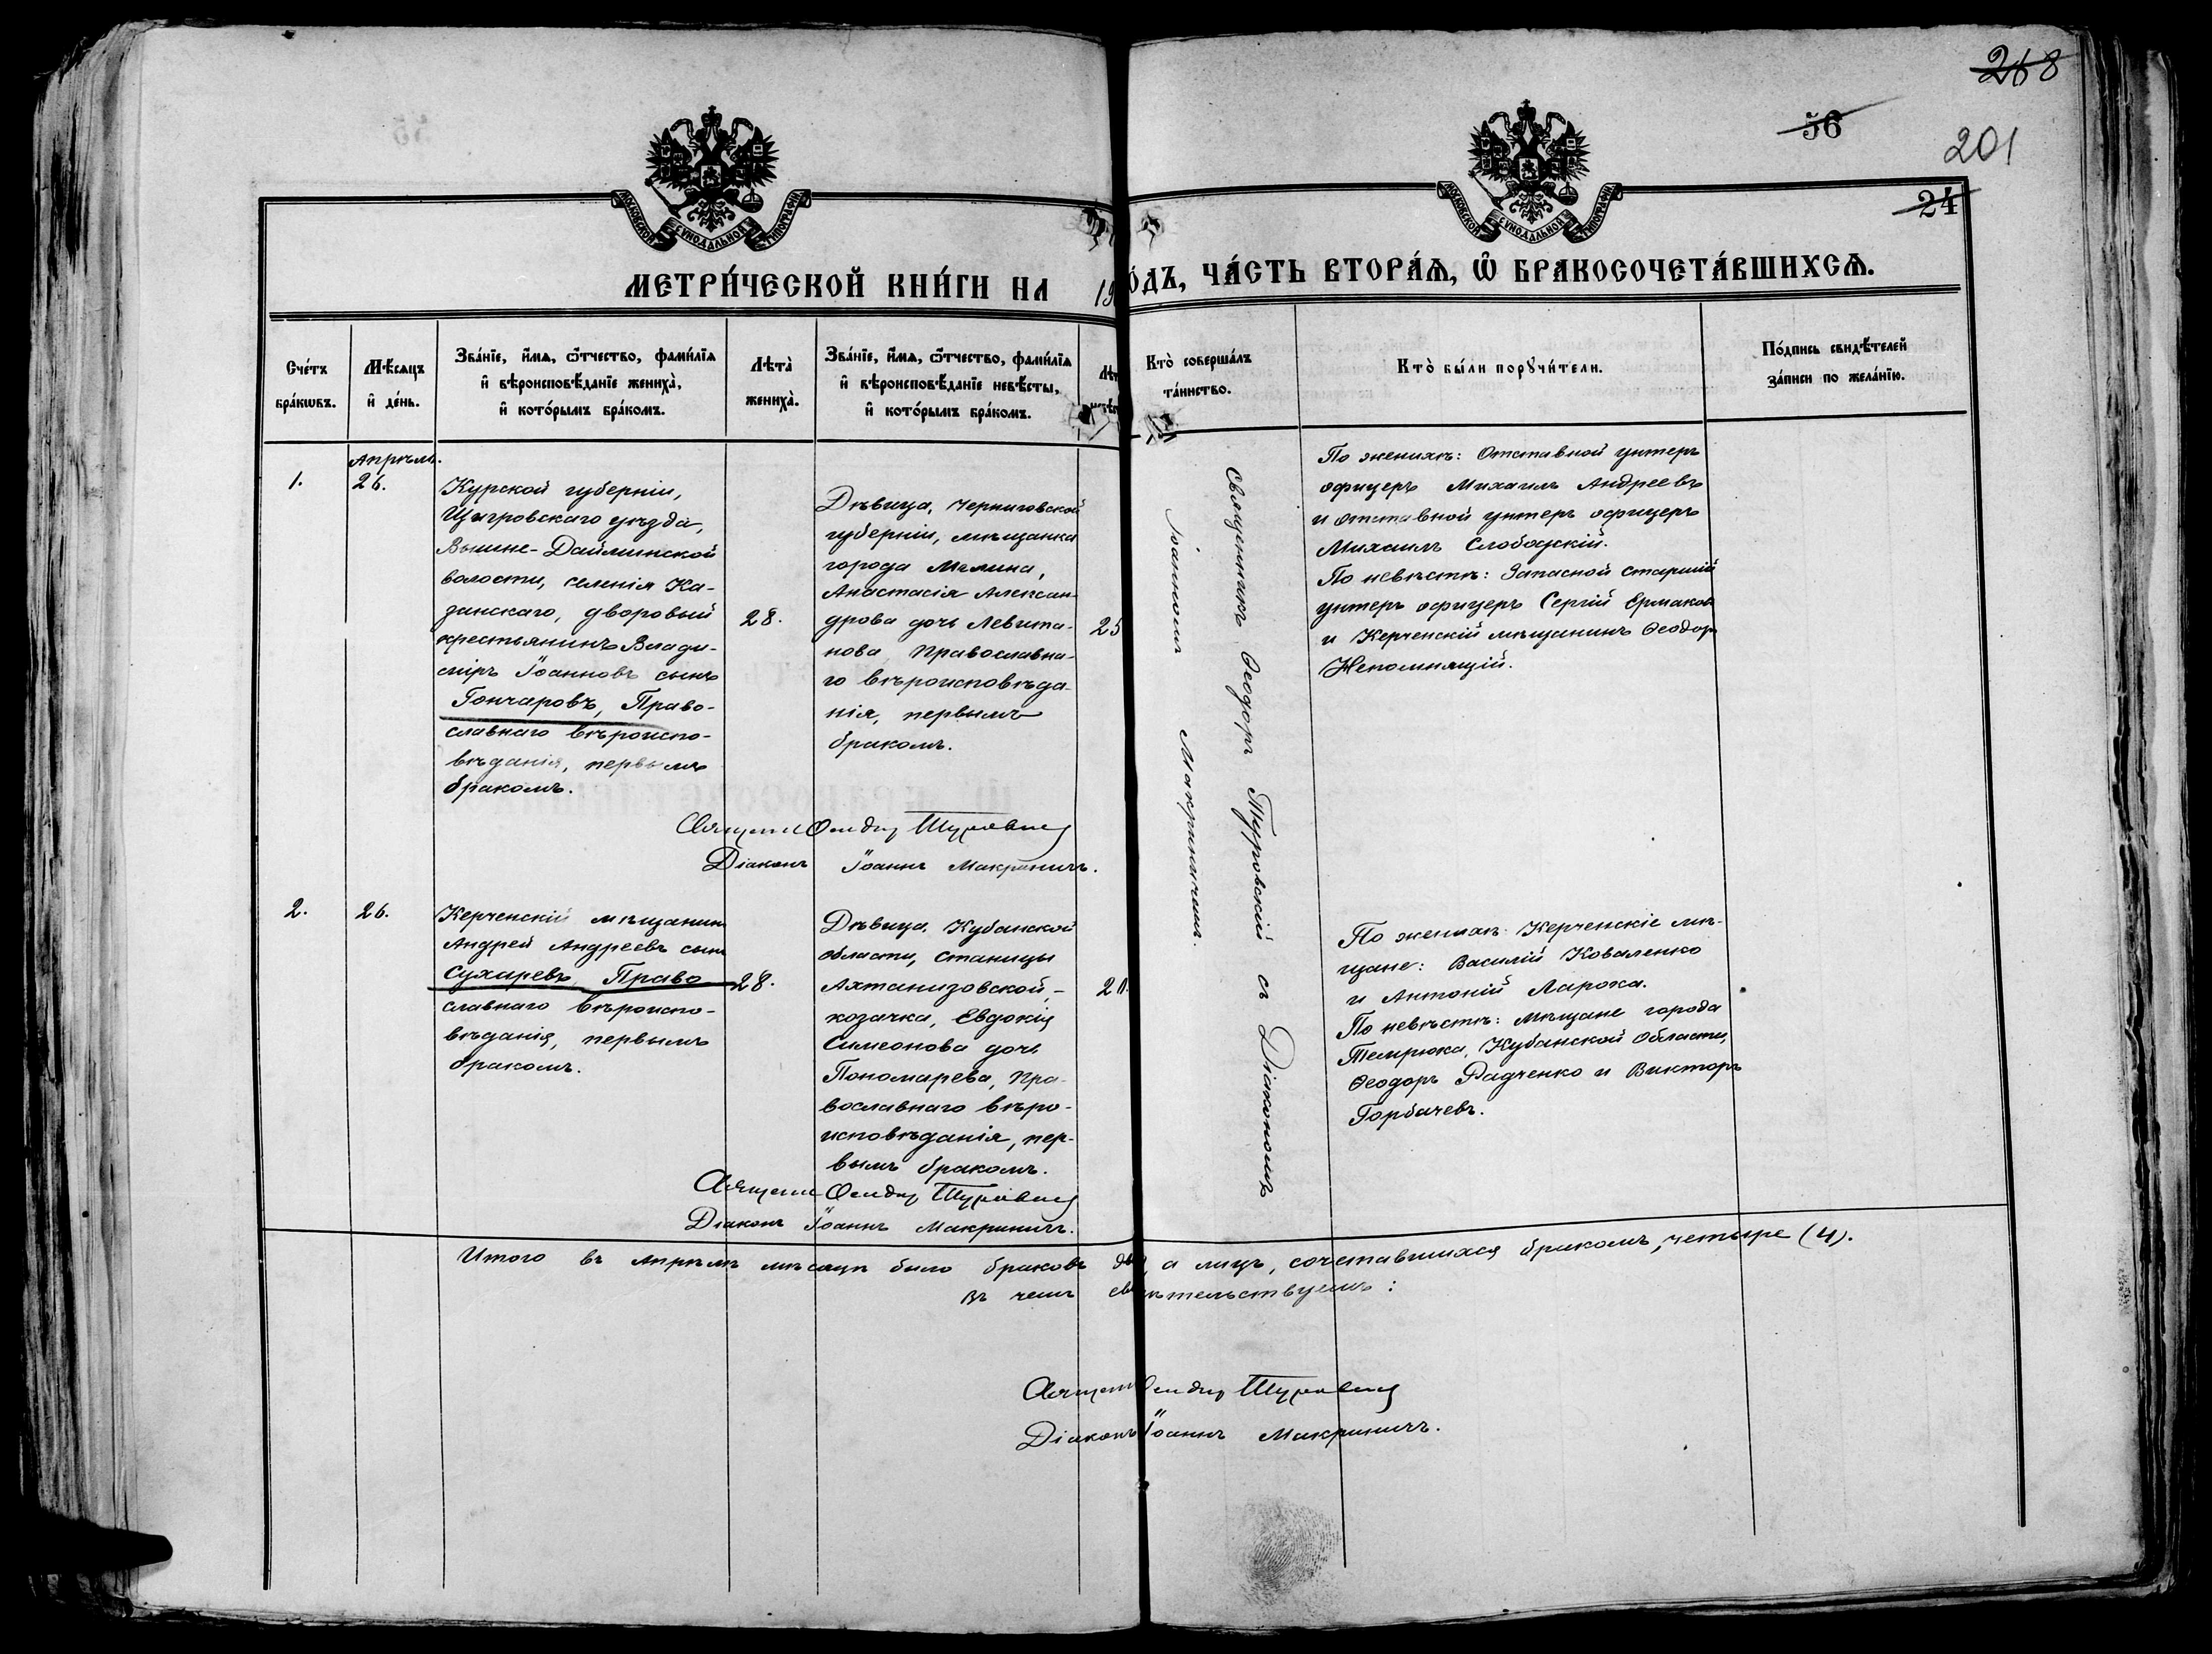 268
56
201
24
МОСКОВСКОЙ СѴНОДАЛЬНОЙ ТИПОГРАФІИ
МОСКОВСКОЙ СѴНОДАЛЬНОЙ ТИПОГРАФІИ
МЕТРИ́ЧЕСКОЙ КНИ́ГИ НА 19
О́ДЪ, ЧА́СТЬ ВТОРА́Я, Ѽ БРАКОСОЧЕТА́ВШИХСЯ.
Сче́тъ
бра́кѡвъ.
Мѣ́сяцъ
и҆ де́нь.
Зва́нїе, и҆́мя, ѻ҆́тчество, фами́лїя
и҆ вѣроисповѣ́данїе жениха̀,
и҆ кото́рымъ бра́комъ.
Лѣта̀
жениха̀.
Зва́нїе, и҆́мя, ѻ҆́тчество, фами́лїя
и҆ вѣроисповѣ́данїе невѣ́сты,
и҆ кото́рымъ бра́комъ.
Кто̀ соверша́лъ
та́инство.
Кто̀ бы́ли порꙋчи́тели.
По́дпись свидѣ́телей
за́писи по жела́нїю.
1.
Апрѣль.
26.
Курской губерніи,
Щигровскаго уѣзда,
Вышне-Дайминской
волости, селенія Ка-
занскаго, дворовый
крестьянинъ Влади-
міръ Іоанновъ сынъ
Гончаровъ, Право-
славнаго вѣроиспо-
вѣданія, первымъ
бракомъ.
28.
Дѣвица, Черниговской
губерніи, мѣщанка
города Мглина,
Анастасія Алексан-
дрова дочь Левита-
нова, Православна-
го вѣроисповѣда-
нія, первымъ
бракомъ.
25
Священникъ Ѳеодоръ Туровскій съ Діакономъ
Іоанномъ Макриничемъ.
По женихѣ: Отставной унтеръ
офицеръ Михаилъ Андреевъ
и отставной унтеръ офицеръ
Михаилъ Слободскій.
По невѣстѣ: Запасной старшій
унтеръ офицеръ Сергій Ермаковъ
и Керченскій мѣщанинъ Ѳеодоръ
Непомнящій.
Священ Ѳеодор Туровскій
Діаконъ Іоаннъ Макриничъ.
2.
26.
Керченскій мѣщанинъ
Андрей Андреевъ сынъ
Сухаревъ, Право
славнаго вѣроиспо-
вѣданія, первымъ
бракомъ.
28.
Дѣвица, Кубанской
области, станицы
Ахтанизовской,-
козачка, Евдокія
Симеонова дочь
Пономарева, Пра-
вославнаго вѣро-
исповѣданія, пер-
вымъ бракомъ.
По женихѣ: Керченскіе мѣ-
щане: Василій Коваленко
и Антоній Ларожа.
По невѣстѣ: Мѣщане города
Темрюка, Кубанской Области,
Ѳеодоръ Радченко и Викторъ
Горбачевъ.
Священ Ѳеодор Туровскій
Діаконъ Іоаннъ Макриничъ.
Итого въ Апрѣлѣ мѣсяцѣ было браковъ два, а лицъ, сочетавшихся бракомъ, четыре (4).
въ чемъ свидѣтельствуемъ:
Священ Ѳеодор Туровскій
Діаконъ Іоаннъ Макриничъ.